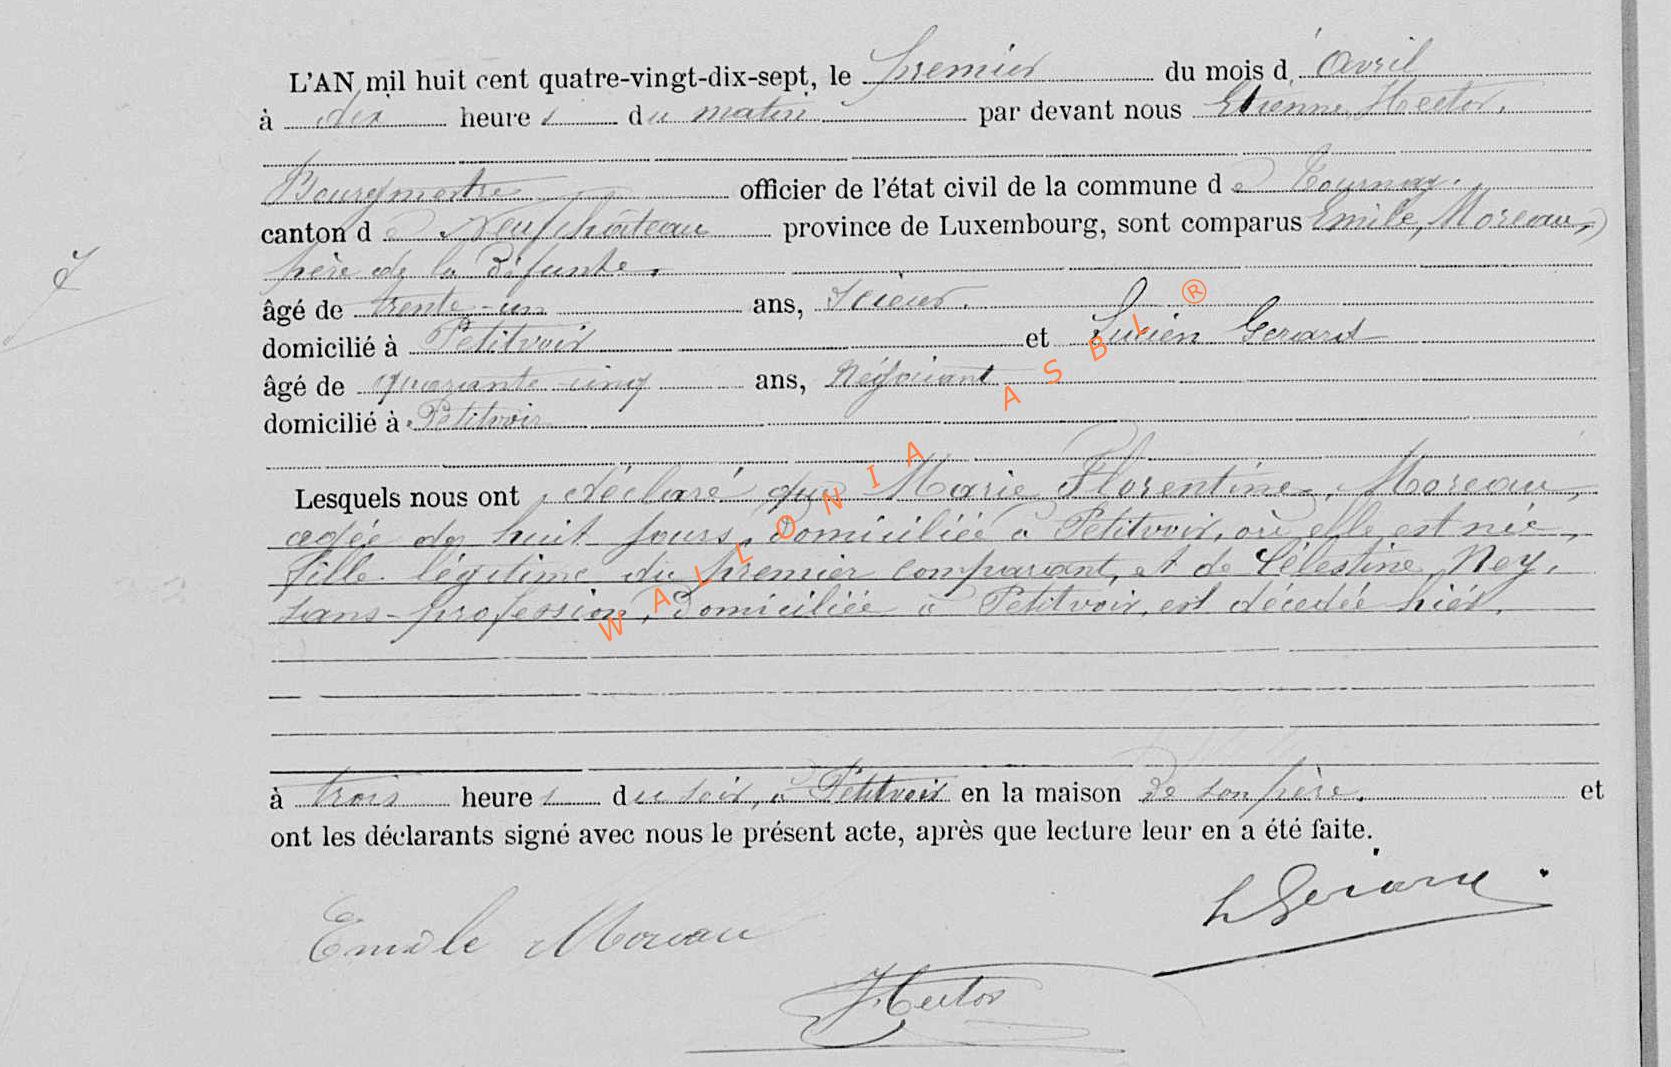 L'AN mil huit cent quatre-vingt-dix-sept, le premier du mois d'Avril
à dix heures du matin par devant nous Etienne, Hector,
Bourgmestre officier de l'état civil de la commune de Tournay.
canton de Neufchâteau province de Luxembourg, sont comparus Emile, Moreau,
père de la défunte.
âgé de trente-un ans, Scieur.
domicilié à Petitvoir et Lucien Gerard
âgé de quarante cinq ans, Négociant
domicilié à Petitvoir
Lesquels nous ont déclaré que Marie Florentine, Moreau,
agée de huit jours, domiciliée à Petitvoir, où elle est née,
fille légitime du premier comparant, et de Célestine Ney,
sans-profession, domiciliée à Petitvoir, est décedée hiér,
à trois heures du soir, à Petitvoir en la maison de son père, et
ont les déclarants signé avec nous le présent acte, après que lecture leur en a été faite.
L Gerard
Emile Moreau
Hector
WALLONIA ASBL ®